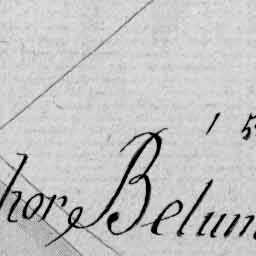 1 5
hor, Belum